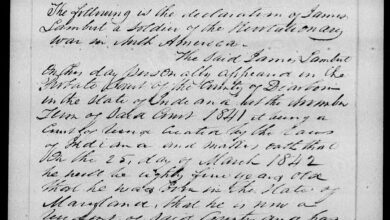 The following is the declaration of James
Lambert a Soldier of the Revolutionary
war in North America.
The Said James Lambert
on this day personally appeared in the
Probate Court of the County of Dearborn
in the State of Indiana, at the
Term of Said Court 1841, it being a
Court of being created by the laws
of Indiana and makes oath that
on the 25th day of March 1842
he will be eighty five years old
that he was born in the State of
Maryland, that he is now a
of said County and has